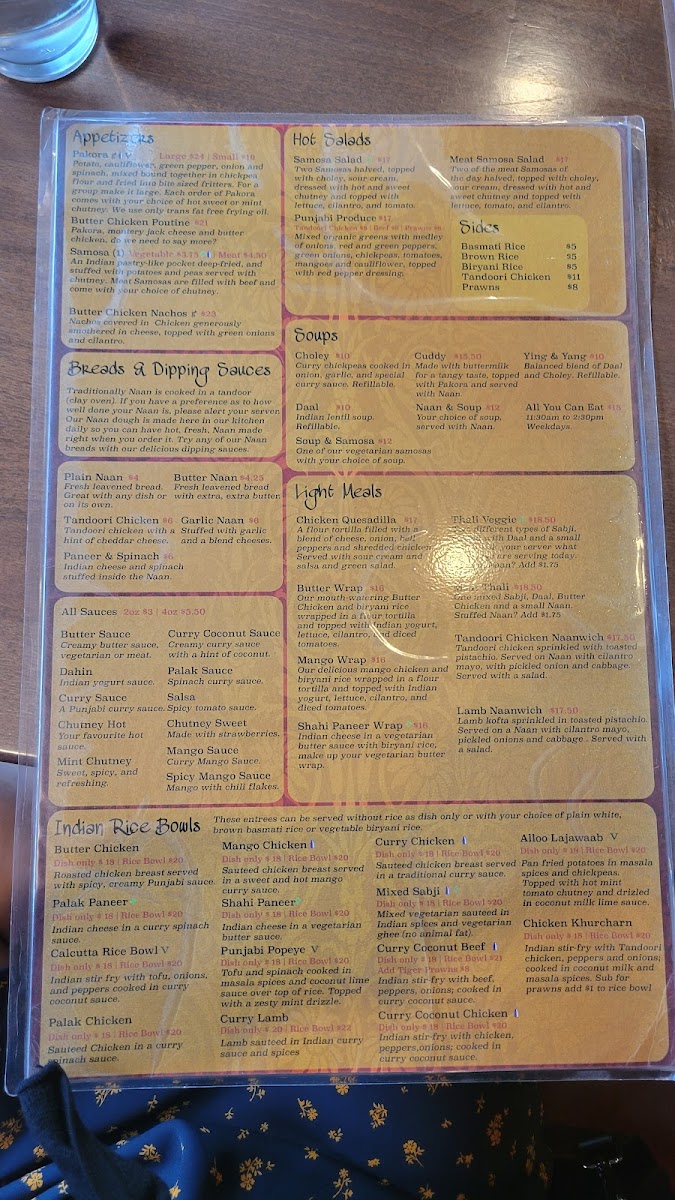 Appetizers
Pakora Large $24 | Small $16
Potato, cauliflower, green pepper, onion and
spinach, mixed bound together in chickpea
flour and fried into bite sized fritters. For a
group make it large. Each order of Pakora
comes with your choice of hot sweet or mint
chutney. We use only trans fat free frying oil.
Butter Chicken Poutine $21
Pakora, montery jack cheese and butter
chicken, do we need to say more?
Samosa (1) Vegetable $3.75 | Meat $4.50
An Indian pastry-like pocket deep-fried, and
stuffed with potatoes and peas served with
chutney. Meat Samosas are filled with beef and
come with your choice of chutney.
Butter Chicken Nachos $23
Nachos covered in Chicken generously
smothered in cheese, topped with green onions
and cilantro.
Breads & Dipping Sauces
Traditionally Naan is cooked in a tandoor
(clay oven). If you have a preference as to how
well done your Naan is, please alert your server.
Our Naan dough is made here in our kitchen
daily so you can have hot, fresh, Naan made
right when you order it. Try any of our Naan
breads with our delicious dipping sauces.
Plain Naan $4
Fresh leavened bread.
Great with any dish or
on its own.
Butter Naan $4.25
Fresh leavened bread
with extra, extra butter.
Tandoori Chicken $6
Tandoori chicken with a
hint of cheddar cheese.
Garlic Naan $6
Stuffed with garlic
and a blend cheeses.
Paneer & Spinach $6
Indian cheese and spinach
stuffed inside the Naan.
All Sauces 2oz $3 | 4oz $5.50
Butter Sauce
Creamy butter sauce,
vegetarian or meat.
Dahin
Indian yogurt sauce.
Curry Sauce
A Punjabi curry sauce.
Chutney Hot
Your favourite hot
sauce.
Mint Chutney
Sweet, spicy, and
refreshing.
Curry Coconut Sauce
Creamy curry sauce
with a hint of coconut.
Palak Sauce
Spinach curry sauce.
Salsa
Spicy tomato sauce.
Chutney Sweet
Made with strawberries.
Mango Sauce
Curry Mango Sauce.
Spicy Mango Sauce
Mango with chili flakes.
Hot Salads
Samosa Salad $17
Two Samosas halved, topped
with choley, sour cream,
dressed with hot and sweet
chutney and topped with
lettuce, cilantro, and tomato.
Punjabi Produce $17
Tandoori Chicken $8 | Beef $8 | Prawns $8
Mixed organic greens with medley
of onions, red and green peppers,
green onions, chickpeas, tomatoes,
mangoes and cauliflower, topped
with red pepper dressing.
Meat Samosa Salad $17
Two of the meat Samosas of
the day halved, topped with choley,
sour cream, dressed with hot and
sweet chutney and topped with
lettuce, tomato, and cilantro.
Sides
Basmati Rice $5
Brown Rice $5
Biryani Rice $5
Tandoori Chicken $11
Prawns $8
Soups
Choley $10
Curry chickpeas cooked in
onion, garlic, and special
curry sauce. Refillable.
Cuddy $13.50
Made with buttermilk
for a tangy taste, topped
with Pakora and served
with Naan.
Ying & Yang $10
Balanced blend of Daal
and Choley. Refillable.
Daal $10
Indian lentil soup.
Refillable.
Naan & Soup $12
Your choice of soup,
served with Naan.
All You Can Eat $15
11:30am to 2:30pm
Weekdays.
Soup & Samosa $12
One of our vegetarian samosas
with your choice of soup.
Light Meals
Chicken Quesadilla $17
A flour tortilla filled with a
blend of cheese, onion, bell
peppers and shredded chicken.
Served with sour cream and
salsa and green salad.
Butter Wrap $16
Our mouth-watering Butter
Chicken and biryani rice
wrapped in a flour tortilla
and topped with Indian yogurt,
lettuce, cilantro, and diced
tomatoes.
Mango Wrap $16
Our delicious mango chicken and
biryani rice wrapped in a flour
tortilla and topped with Indian
yogurt, lettuce, cilantro, and
diced tomatoes.
Shahi Paneer Wrap $16
Indian cheese in a vegetarian
butter sauce with biryani rice,
make up your vegetarian butter
wrap.
Thali Veggie $18.50
different types of Sabji,
with Daal and a small
your server what
are serving today.
Add $1.75
Thali $18.50
One mixed Sabji, Daal, Butter
Chicken and a small Naan.
Stuffed Naan? Add $1.75
Tandoori Chicken Naanwich $17.50
Tandoori chicken sprinkled with toasted
pistachio. Served on Naan with cilantro
mayo, with pickled onion and cabbage.
Served with a salad.
Lamb Naanwich $17.50
Lamb kofta sprinkled in toasted pistachio.
Served on a Naan with cilantro mayo,
pickled onions and cabbage. Served with
a salad.
Indian Rice Bowls
These entrees can be served without rice as dish only or with your choice of plain white,
brown basmati rice or vegetable biryani rice.
Butter Chicken
Dish only $ 18 | Rice Bowl $20
Roasted chicken breast served
with spicy, creamy Punjabi sauce.
Palak Paneer
Dish only $ 18 | Rice Bowl $20
Indian cheese in a curry spinach
sauce.
Calcutta Rice Bowl V
Dish only $ 18 | Rice Bowl $20
Indian stir fry with tofu, onions,
and peppers cooked in curry
coconut sauce.
Palak Chicken
Dish only $ 18 | Rice Bowl $20
Sauteed Chicken in a curry
spinach sauce.
Mango Chicken
Dish only $ 18 | Rice Bowl $20
Sauteed chicken breast served
in a sweet and hot mango
curry sauce.
Shahi Paneer
Dish only $ 18 | Rice Bowl $20
Indian cheese in a vegetarian
butter sauce.
Punjabi Popeye V
Dish only $ 18 | Rice Bowl $20
Tofu and spinach cooked in
masala spices and coconut lime
sauce over top of rice. Topped
with a zesty mint drizzle.
Curry Lamb
Dish only $ 20 | Rice Bowl $22
Lamb sauteed in Indian curry
sauce and spices
Curry Chicken
Dish only $ 18 | Rice Bowl $20
Sauteed chicken breast served
in a traditional curry sauce.
Mixed Sabji
Dish only $ 18 | Rice Bowl $20
Mixed vegetarian sauteed in
Indian spices and vegetarian
ghee (no animal fat).
Curry Coconut Beef
Dish only $ 18 | Rice Bowl $21
Add Tiger Prawns $8
Indian stir-fry with beef,
peppers, onions; cooked in
curry coconut sauce.
Curry Coconut Chicken
Dish only $ 18 | Rice Bowl $20
Indian stir-fry with chicken,
peppers,onions; cooked in
curry coconut sauce.
Alloo Lajawaab V
Dish only $ 18 | Rice Bowl $20
Pan fried potatoes in masala
spices and chickpeas.
Topped with hot mint
tomato chutney and drizled
in coconut milk lime sauce.
Chicken Khurcharn
Dish only $ 18 | Rice Bowl $20
Indian stir-fry with Tandoori
chicken, peppers and onions;
cooked in coconut milk and
masala spices. Sub for
prawns add $1 to rice bowl